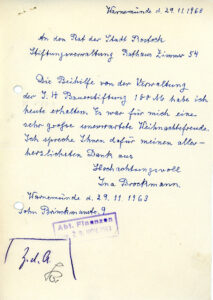 Warnemünde d. 29.11.1963
An den Rat der Stadt Rostock
Stiftungsverwaltung Rathaus Zimmer 54
Die Beihilfe von der Verwaltung
der J. H. Bauerstiftung 100 M habe ich
heute erhalten. Es war für mich eine
sehr große unerwartete Weihnachtsfreude.
Ich spreche Ihnen dafür meinen aller-
herzlichsten Dank aus
Hochachtungsvoll
Ina Brockmann
Warnemünde d. 29.11.1963
John Brinckmanstr. 9
Abt. Finanzen
Z. d. A